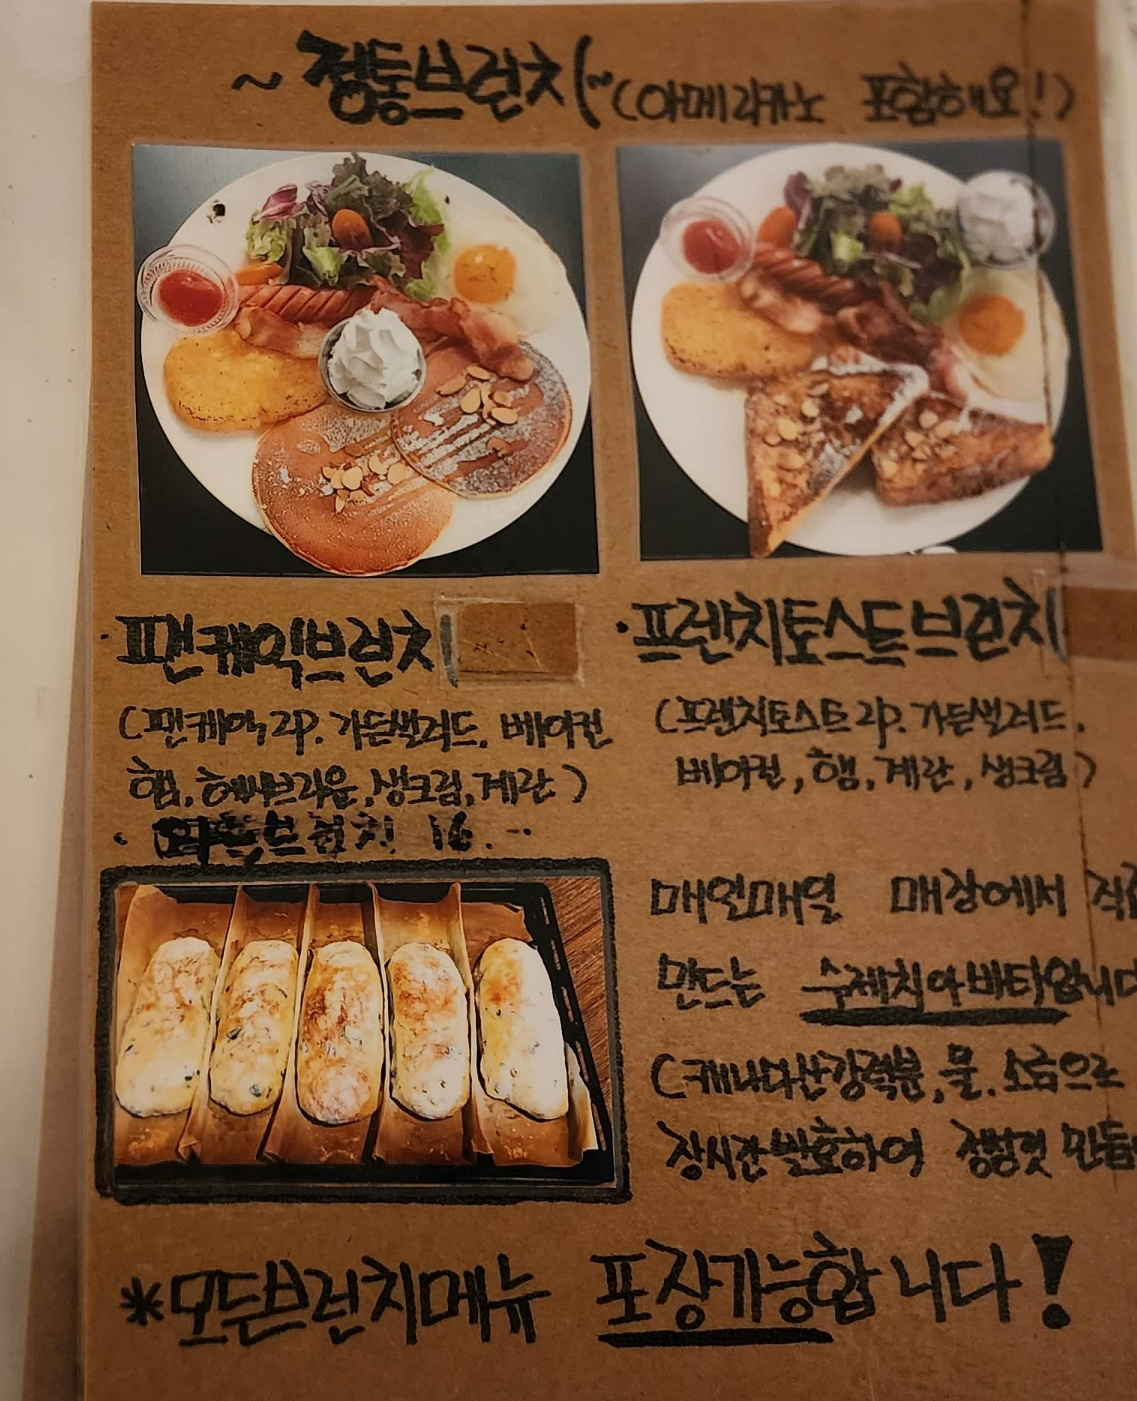 ~ 정통브런치~ (아메리카노 포함해요!)
· 팬케익브런치
· 프렌치토스트브런치
(팬케익2p. 가든샐러드. 베이컨
햄, 해쉬브라운, 생크림, 계란)
(프렌치토스트2p. 가든샐러드,
베이컨, 햄, 계란, 생크림)
브런치 16.
매일매일 매장에서
만드는 수제치아바타입니다
(캐나다산강력분, 물, 소금으로
장시간발효하여 정성껏
*모든브런치메뉴 포장가능합니다!